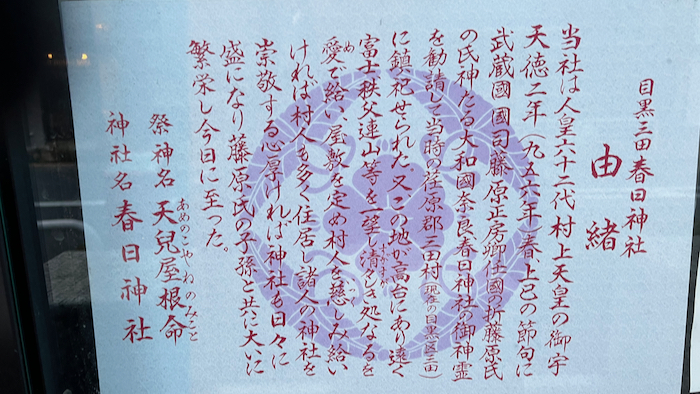 目黒三田春日神社
由緒
当社は人皇六十二代村上天皇の御宇
天徳二年(九五六年)春、上巳の節句に
武蔵國國司藤原正房卿仕國の折藤原氏
の氏神たる大和國奈良春日神社の御神霊
を勧請して当時の荏原郡三田村(現在の目黒区三田)
に鎮め祀せられた。又この地が高台にあり遠く
富士秩父連山等を一望し清々しき処なるを
愛で給い、屋敷を定め村人を慈しみ給い
ければ村人も多く住居し諸人の神社を
崇敬する心厚ければ神社も日々に
盛になり藤原氏の子孫と共に大いに
繁栄し今日に至った。
祭神名 天兒屋根命
あめのこやねのみこと
神社名 春日神社